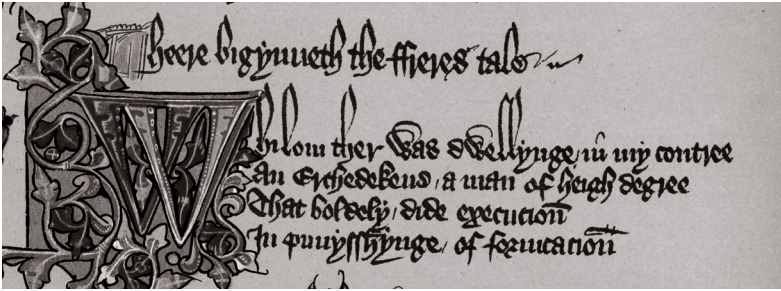 Heere bigynneth the ffreres tale
Whilom ther was dwellynge / in my contree
An Erchedekene / a man of heigh degree
That boldely / dide execucion̄
In punysshynge / of fornicacion̄